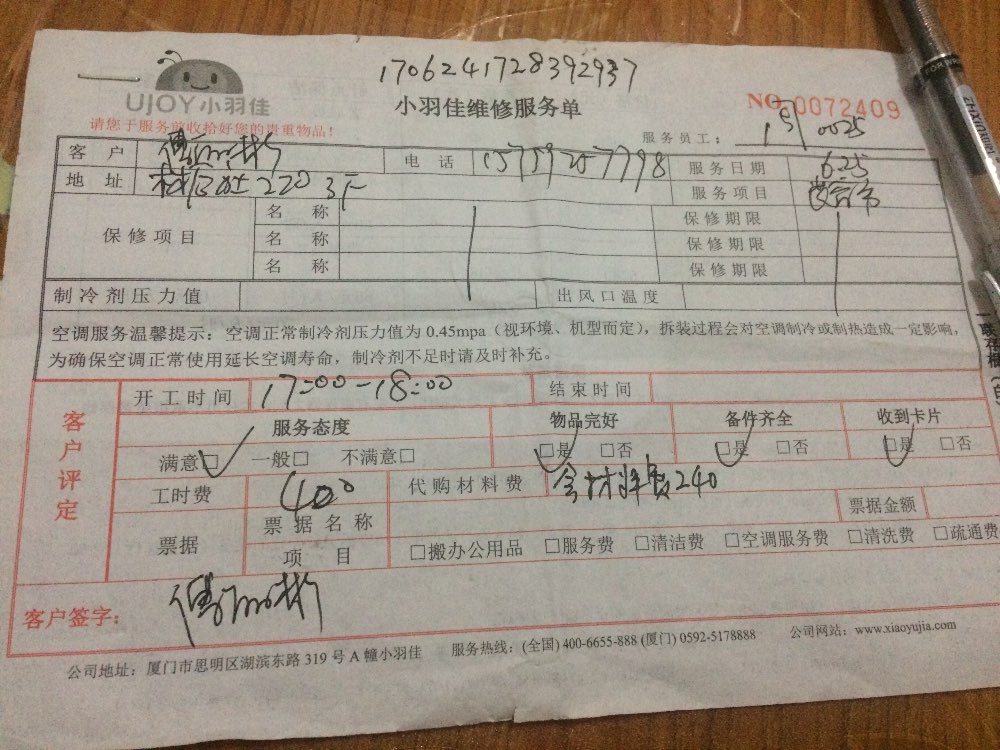 1706241728392937
UJOY小羽佳
小羽佳维修服务单
NO 0072409
请您于服务前收拾好您的贵重物品!
服务员工: 0025
客户 电话 15759257798 服务日期 6.25
地址 220 服务项目
保修项目 名称 保修期限
名称 保修期限
名称 保修期限
制冷剂压力值 出风口温度
空调服务温馨提示：空调正常制冷剂压力值为 0.45mpa（视环境、机型而定），拆装过程会对空调制冷或制热造成一定影响，
为确保空调正常使用延长空调寿命，制冷剂不足时请及时补充。
客户评定
开工时间 17:00-18:00 结束时间
服务态度 物品完好 备件齐全 收到卡片
满意□ 一般□ 不满意□ □是 □否 □是 □否 □是 □否
工时费 400 代购材料费 含材料费240
票据 票据名称 票据金额
项目 □搬办公用品 □服务费 □清洁费 □空调服务费 □清洗费 □疏通费
客户签字:
公司地址：厦门市思明区湖滨东路 319 号 A 幢小羽佳 服务热线：(全国) 400-6655-888 (厦门) 0592-5178888 公司网站：www.xiaoyujia.com